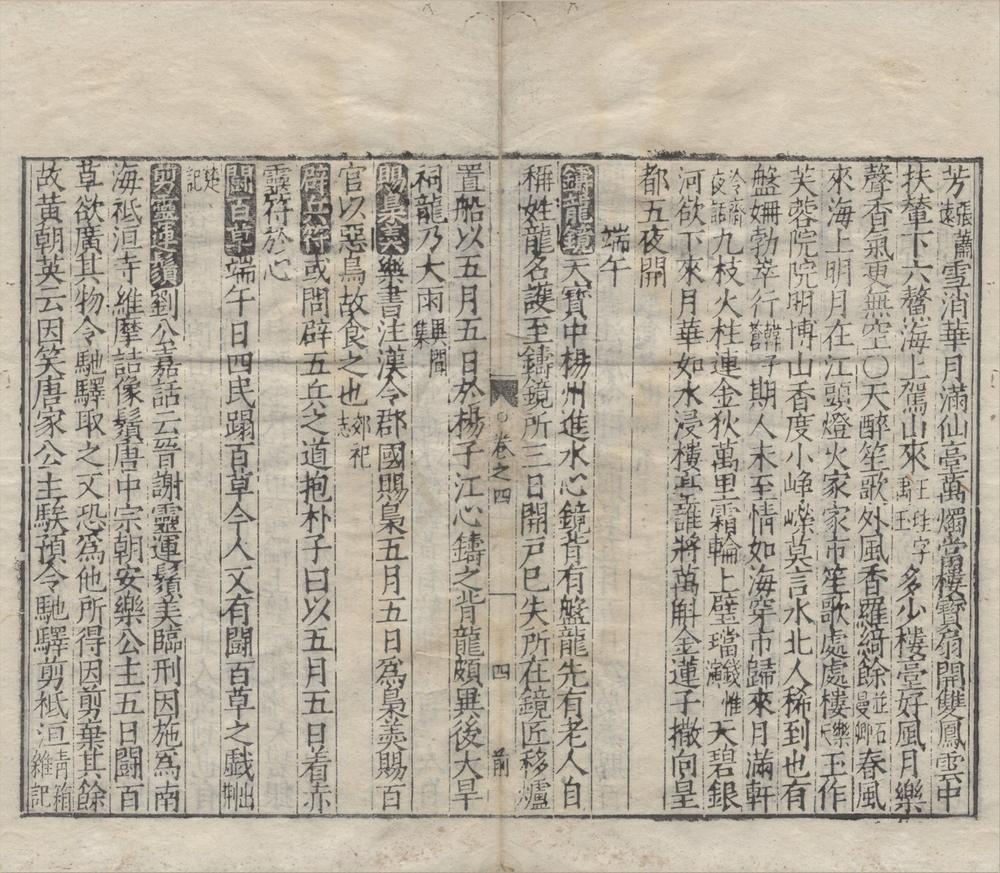 芳張蕭遠雪消華月滿仙臺萬燭當樓寶扇開雙鳳雲中
扶輦下六鰲海上駕山來王珪字禹玉多少樓臺好風月樂
聲香氣更無空〇天醉笙歌外風香羅綺餘並石曼卿春風
來海上明月在江頭燈火家家市笙歌處處樓樂天王作
芙蓉院院明博山香度小崢嶸莫言水北人稀到也有
盤姍勃窣行韓子蒼期人未至情如海穿市歸來月滿軒
冷齋夜話九枝火柱連金狄萬里霜輪上璧璫錢惟演天碧銀
河欲下來月華如水浸樓臺誰將萬斛金蓮子撒向皇
都五夜開
端午
鑄龍鏡天寶中楊州進水心鏡背有盤龍先有老人自
稱姓龍名護至鑄鏡所三日開戶已失所在鏡近移爐
卷之四
四
前
置船以五月五日於楊子江心鑄之背龍頗異後大旱
祠龍乃大雨異聞集
賜梟羹樂書注漢令郡國賜梟五月五日為梟羹賜百
官以惡鳥故食之也郊祀志
辟兵符或問辟五兵之道抱朴子曰以五月五日着赤
靈符於心
鬪百草端午日四民蹋百草今人又有鬪百草之戲出荆
楚記
剪靈運鬚劉公嘉話云晉謝靈運鬚美臨刑因施為南
海祇洹寺維摩詰像鬚唐中宗朝安樂公主五日鬪百
草欲廣其物令馳驛取之又恐為他所得因剪棄其餘
故黃朝英云因笑唐家公主騃預令馳驛剪祇洹青箱雜記